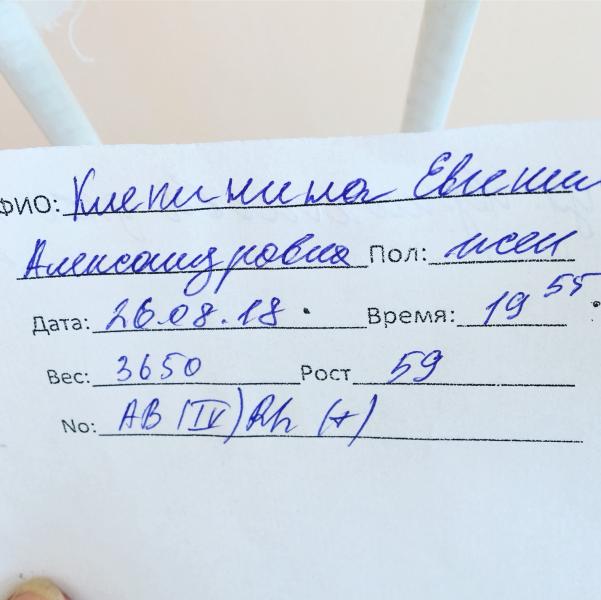 ФИО: Клепинина Евгени
Александровна Пол: жен
Дата: 26.08.18. Время: 19 55
Вес: 3650 Рост 59
No: AB (IV) Rh (+)